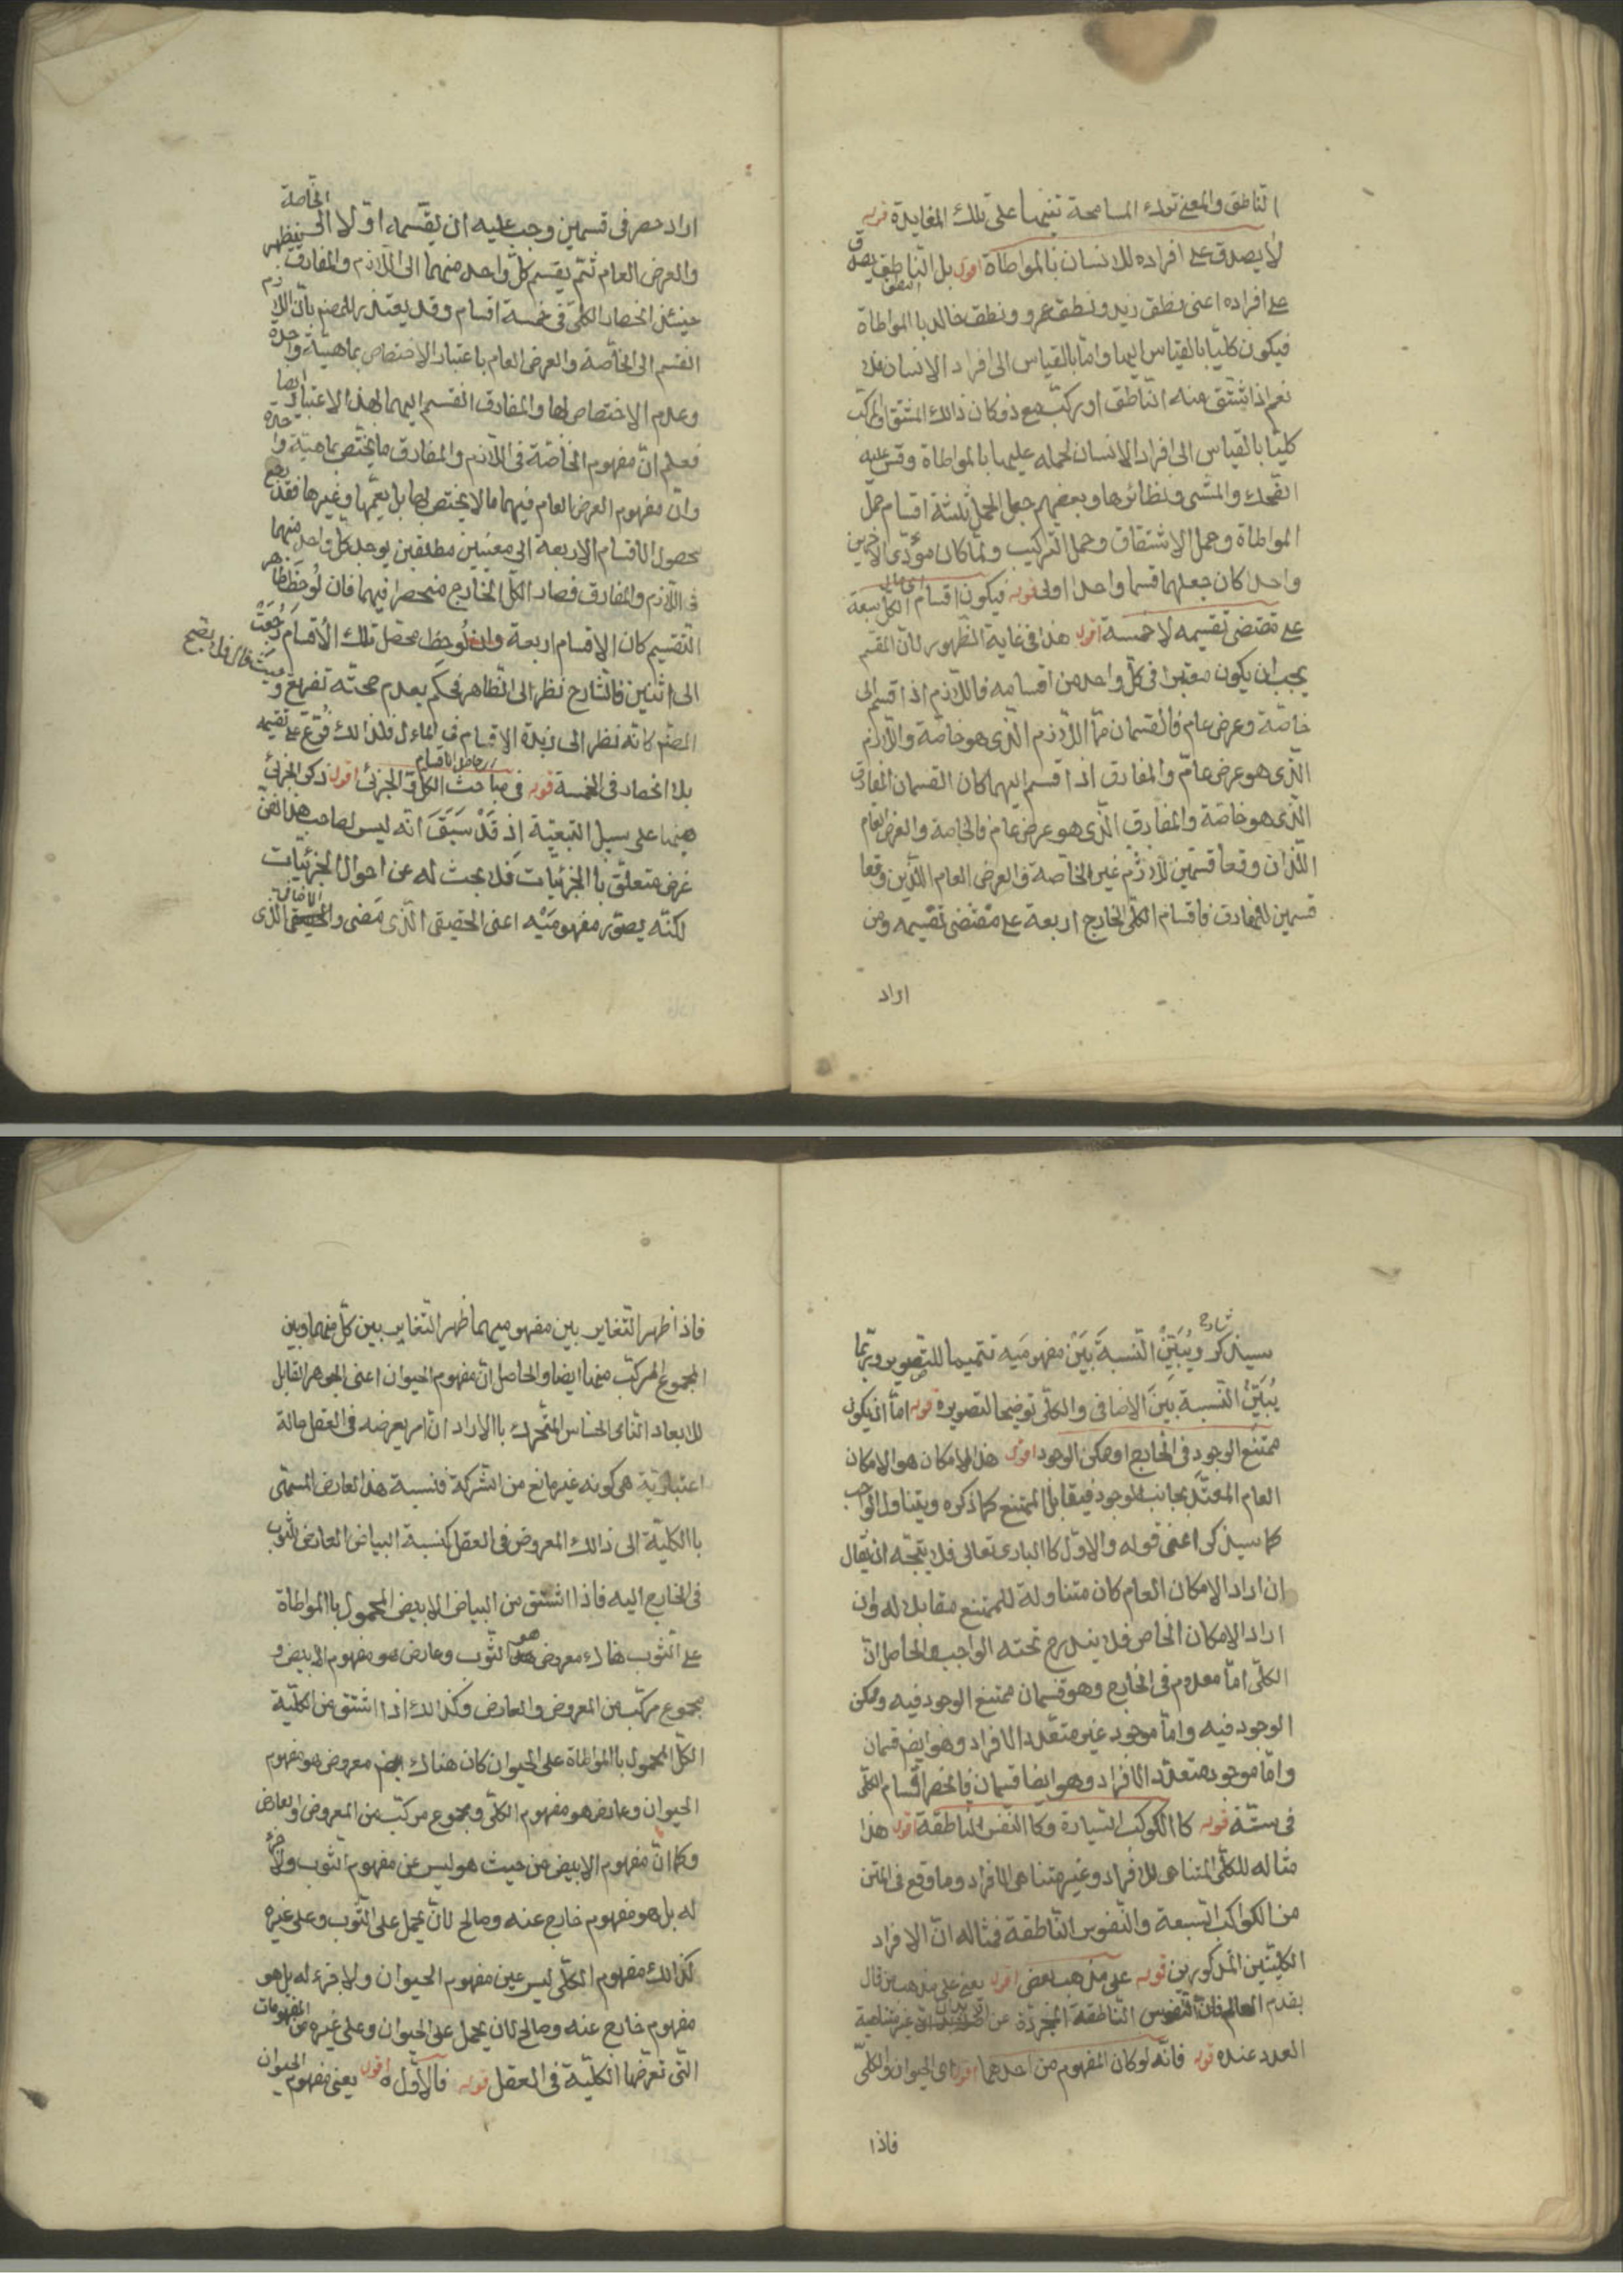 الناطق والمعنى ترك المسامحة تنبيها على تلك المغايرة قوله
لا يصدق على افراده للانسان بالمواطاة اقول بل الناطق يصدق
النطق
على افراده اعنى نطق زيد ونطق عمرو ونطق خالد با المواطاة
فيكون كليا بالقياس اليها واما بالقياس الى افراد الانسان فلا
نعم اذا اشتق منه الناطق او ركب مع ذو كان ذالك المشتق والمركب
كليا بالقياس الى افراد الانسان لحمله عليها بالمواطاة وقس عليه
الضحك والمشى ونظائرها وبعضهم جعل الحمل ثلثة اقسام حمل
المواطاة وحمل الاشتقاق وحمل التركيب ولما كان مؤدى الاخرين
واحدا كان جعلهما قسما واحدا اولى قوله فيكون اقسام الكلى سبعة
على مقتضى تقسيمه لا خمسة اقول هذا فى غاية الظهور لان المقسم
يجب ان يكون معتبرا فى كل واحد من اقسامه فاللازم اذا قسم الى
خاصة وعرض عام فالقسمان هما اللازم الذى هو خاصة واللازم
الذى هو عرض عام والمفارق اذا قسم اليهما كان القسمان المفارق
الذى هو خاصة والمفارق الذى هو عرض عام فالخاصة والعرض العام
اللذان وقعا قسمين للازم غير الخاصة والعرض العام اللذين وقعا
قسمين للمفارق فاقسام الكلى الخارج اربعة على مقتضى تقسيمه ومن
اراد
الخاصة
اراد حصره فى قسمين وجب عليه ان يقسمه اولا الى
والعرض العام ثم يقسم كل واحد منهما الى اللازم والمفارق فيظهر
حينئذ انحصار الكلى فى خمسة اقسام وقد يعتذر للمصنف بان اللازم
انقسم الى الخاصة والعرض العام باعتبار الاختصاص بماهية واحدة
وعدم الاختصاص بها والمفارق انقسم اليهما بهذا الاعتبار ايضا
فعلم ان مفهوم الخاصة فى اللازم والمفارق ما يختص بماهية واحدة
وان مفهوم العرض العام فيهما ما لا يختص بها بل يعمها وغيرها فقد رجع
محصول الاقسام الاربعة الى معنيين مطلقين يوجد كل واحد منهما
فى اللازم والمفارق فصار الكلى الخارج منحصرا فيهما فان لوحظ ظاهر
التقسيم كان الاقسام اربعة وان لوحظ محصل تلك الاقسام رجعت
الى اثنين فالشارح نظر الى الظاهر فحكم بعدم صحته تفريع و
المصنف كانه نظر الى زبدة الاقسام فى المآل فلذالك فرع على تقسيمه
بلا انحصار فى الخمسة قوله فى مباحث الكلى والجزئى اقول ذكر الجزئى
هيهنا على سبيل التبعية اذ قد سبق انه ليس لصاحب هذا الفن
غرض متعلق با الجزئيات فلا بحث له عن احوال الجزئيات
الاضافى
لكنه يصور مفهوميه اعنى الحقيقى الذى مضى والذى
شارح
سيذكر ويبين النسبة بين مفهوميه تتميما للتصوير وربما
يبين النسبة بين الاضافى والكلى توضيحا لتصويره قوله اما ان يكون
ممتنع الوجود فى الخارج او ممكن الوجود اقول هذا الامكان هو الامكان
العام المقيد بجانب الوجود فيقابل الممتنع كما ذكره ويتناول الواجب
كما سيذكر اعنى قوله والاول كا البارى تعالى فلا يتجه ان يقال
ان اراد الامكان العام كان متناولة للممتنع مقابل له وان
اراد الامكان الخاص فلا يندرج تحته الواجب والحاصل ان
الكلى اما معدوم فى الخارج وهو قسمان ممتنع الوجود فيه وممكن
الوجود فيه واما موجود غير متعدد الافراد وهو ايضا قسمان
واما موجود متعدد الافراد وهو ايضا قسمان فانحصر اقسام الكلى
فى ستة قوله كا الكوكب السيارة وكا النفس الناطقة اقول هذا
مثاله للكلى المتناهى الافراد وغير متناهى الافراد وما وقع فى المتن
من الكواكب السبعة والنفوس الناطقة فمثاله ان الافراد
الكليتين المذكورين قوله على مذهب بعض اقول يعنى على مذهب من قال
بقدم العالم فان النفس الناطقة المجردة عن الابدان غير متناهية
العدد عنده قوله فانه لو كان المفهوم من احدهما اقول اى الحيوان والكلى
فاذا
فاذا ظهر التغاير بين مفهوميهما ظهر التغاير بين كل منهما وبين
المجموع المركب منهما ايضا والحاصل ان مفهوم الحيوان اعنى الجوهر القابل
للابعاد النامى الحساس المتحرك باالاراد ان امر يعرضه فى العقل حالة
اعتبارية هى كونه غير مانع من الشركة فنسبة هذا العارض المسمى
با الكلية الى ذالك المعروض فى العقل كنسبة البياض العارض للثوب
فى الخارج اليه فاذا اشتق من البياض الابيض المحمول با المواطاة
على الثوب هناك معروض هو الثوب وعارض هو مفهوم الابيض و
مجموع مركب من المعروض والعارض وكذالك اذا اشتق من الكلية
الكلى المحمول با المواطاة على الحيوان كان هناك معروض هو مفهوم
الحيوان وعارض هو مفهوم الكلى ومجموع مركب من المعروض والعارض
وكما ان مفهوم الابيض من حيث هو ليس عين مفهوم الثوب ولا جزأ
له بل هو مفهوم خارج عنه وصالح لان يحمل على الثوب وعلى غيره
كذالك مفهوم الكلى ليس عين مفهوم الحيوان ولا جزء له بل هو
مفهوم خارج عنه وصالح لان يحمل على الحيوان وعلى غيره من المفهومات
التى تعرضها الكلية فى العقل قوله فالاول اه اقول يعنى مفهوم الحيوان